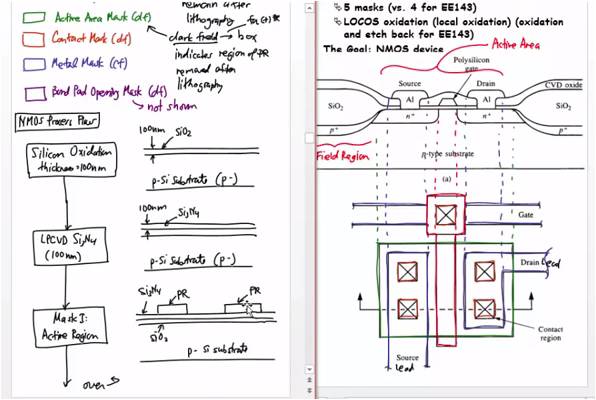 remain after
lithography
for (+) PR
Active Area Mask (df)
dark field → box
Contact Mask (df)
indicates region of PR
removed after
lithography
Metal Mask (cf)
Bond Pad Opening Mask (df)
→ not shown
NMOS Process Flow
Silicon Oxidation
thickness=100nm
100nm
SiO2
p-Si Substrate (p-)
LPCVD Si3N4
(100nm)
100nm
Si3N4
p-Si Substrate (p-)
Mask I:
Active Region
Si3N4
PR
PR
SiO2
p-Si substrate
over →
5 masks (vs. 4 for EE143)
LOCOS oxidation (local oxidation) (oxidation
and etch back for EE143)
The Goal: NMOS device
Active Area
Polysilicon
gate
Source
Drain
CVD oxide
Al
Al
SiO2
SiO2
n+
n+
p+
p+
Field Region
p-type substrate
(a)
Gate
Drain Lead
Contact
region
Source
Lead